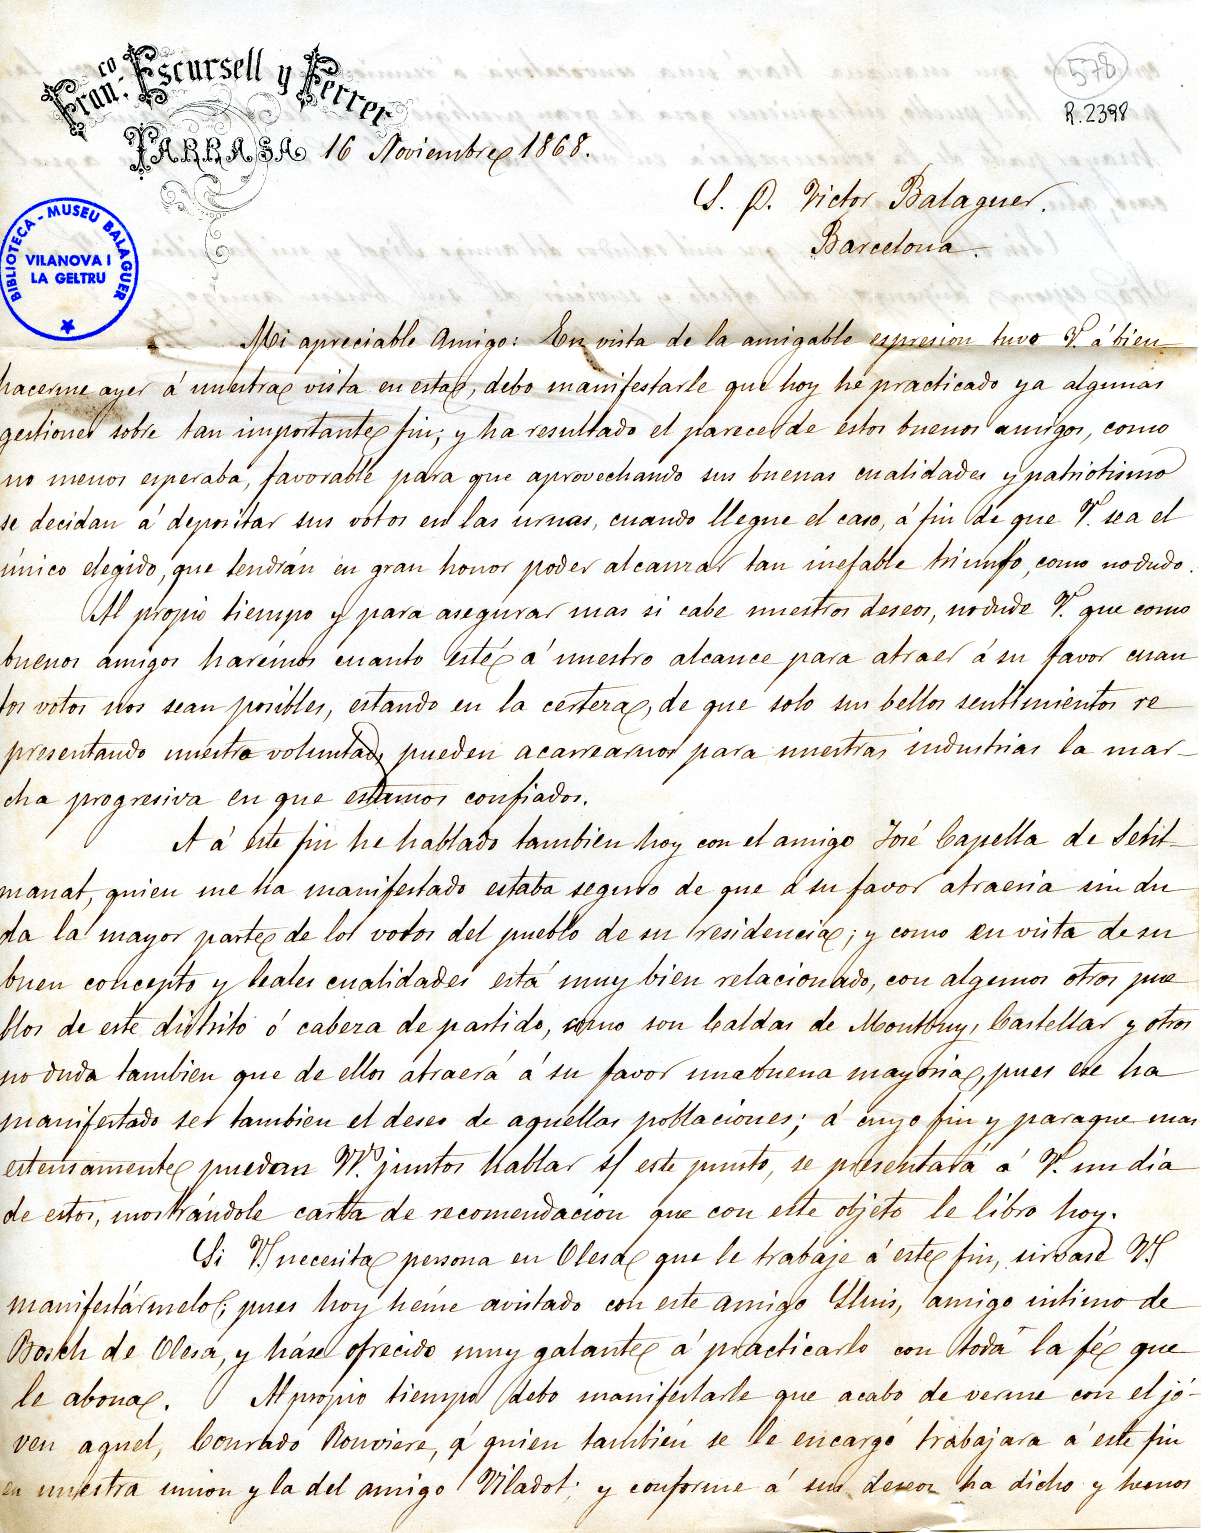 Fran.co Escursell y Ferrer
TARRASA 16 Noviembre 1868.
578
R. 2398
S. D. Victor Balaguer.
Barcelona.
BIBLIOTECA - MUSEU BALAGUER
VILANOVA I
LA GELTRU
Mi apreciable amigo: En vista de la amigable espresion tuvo V. á bien
hacerme ayer á nuestra vista en esta, debo manifestarle que hoy hé practicado ya algunas
gestiones sobre tan importante fin; y ha resultado el parecer de estos buenos amigos, como
no menos esperaba, favorable para que aprovechando sus buenas cualidades y patriotismo
se decidan á depositar sus votos en las urnas, cuando llegue el caso, á fin de que V. sea el
único elegido, que tendrán en gran honor poder alcanzar tan inefable triunfo, como no dudo.
Al propio tiempo y para asegurar mas si cabe nuestros deseos, no dude V. que como
buenos amigos harémos cuanto esté á nuestro alcance para atraer á su favor cuan
tos votos nos sean posibles, estando en la certeza, de que solo sus bellos sentimientos re
presentando nuestra voluntad, pueden acarrearnos para nuestras industrias la mar-
cha progresiva en que estamos confiados.
A á este fin he hablado tambien hoy con el amigo José Capella de Sent-
manat, quien me ha manifestado estaba seguro de que á su favor atraeria sin du
da la mayor parte de los votos del pueblo de su residencia; y como en vista de su
buen concepto y leales cualidades está muy bien relacionado, con algunos otros pue
blos de este distrito ó cabeza de partido, como son Caldas de Montbuy, Castellar y otros
no duda tambien que de ellos atraerá á su favor una buena mayoria, pues ese ha
manifestado ser tambien el deseo de aquellas poblaciones; á cuyo fin y paraque mas
estensamente puedan VV. juntos hablar s/ este punto, se presentará á V. un dia
de estos, mostrándole carta de recomendacion que con este objeto le libro hoy.
Si V. necesita persona en Olesa que le trabaje á este fin, sirvase V.
manifestármelo; pues hoy héme avistado con este amigo Lluis, amigo intimo de
Bosch de Olesa, y háse ofrecido muy galante á practicarlo con toda la fé que
le abona. Al propio tiempo debo manifestarle que acabo de verme con el jó-
ven aquel, Conrado Rouviere, á quien tambien se le encargó trabajara á este fin
en nuestra union y la del amigo Viladot; y conforme á sus deseos ha dicho y hemos